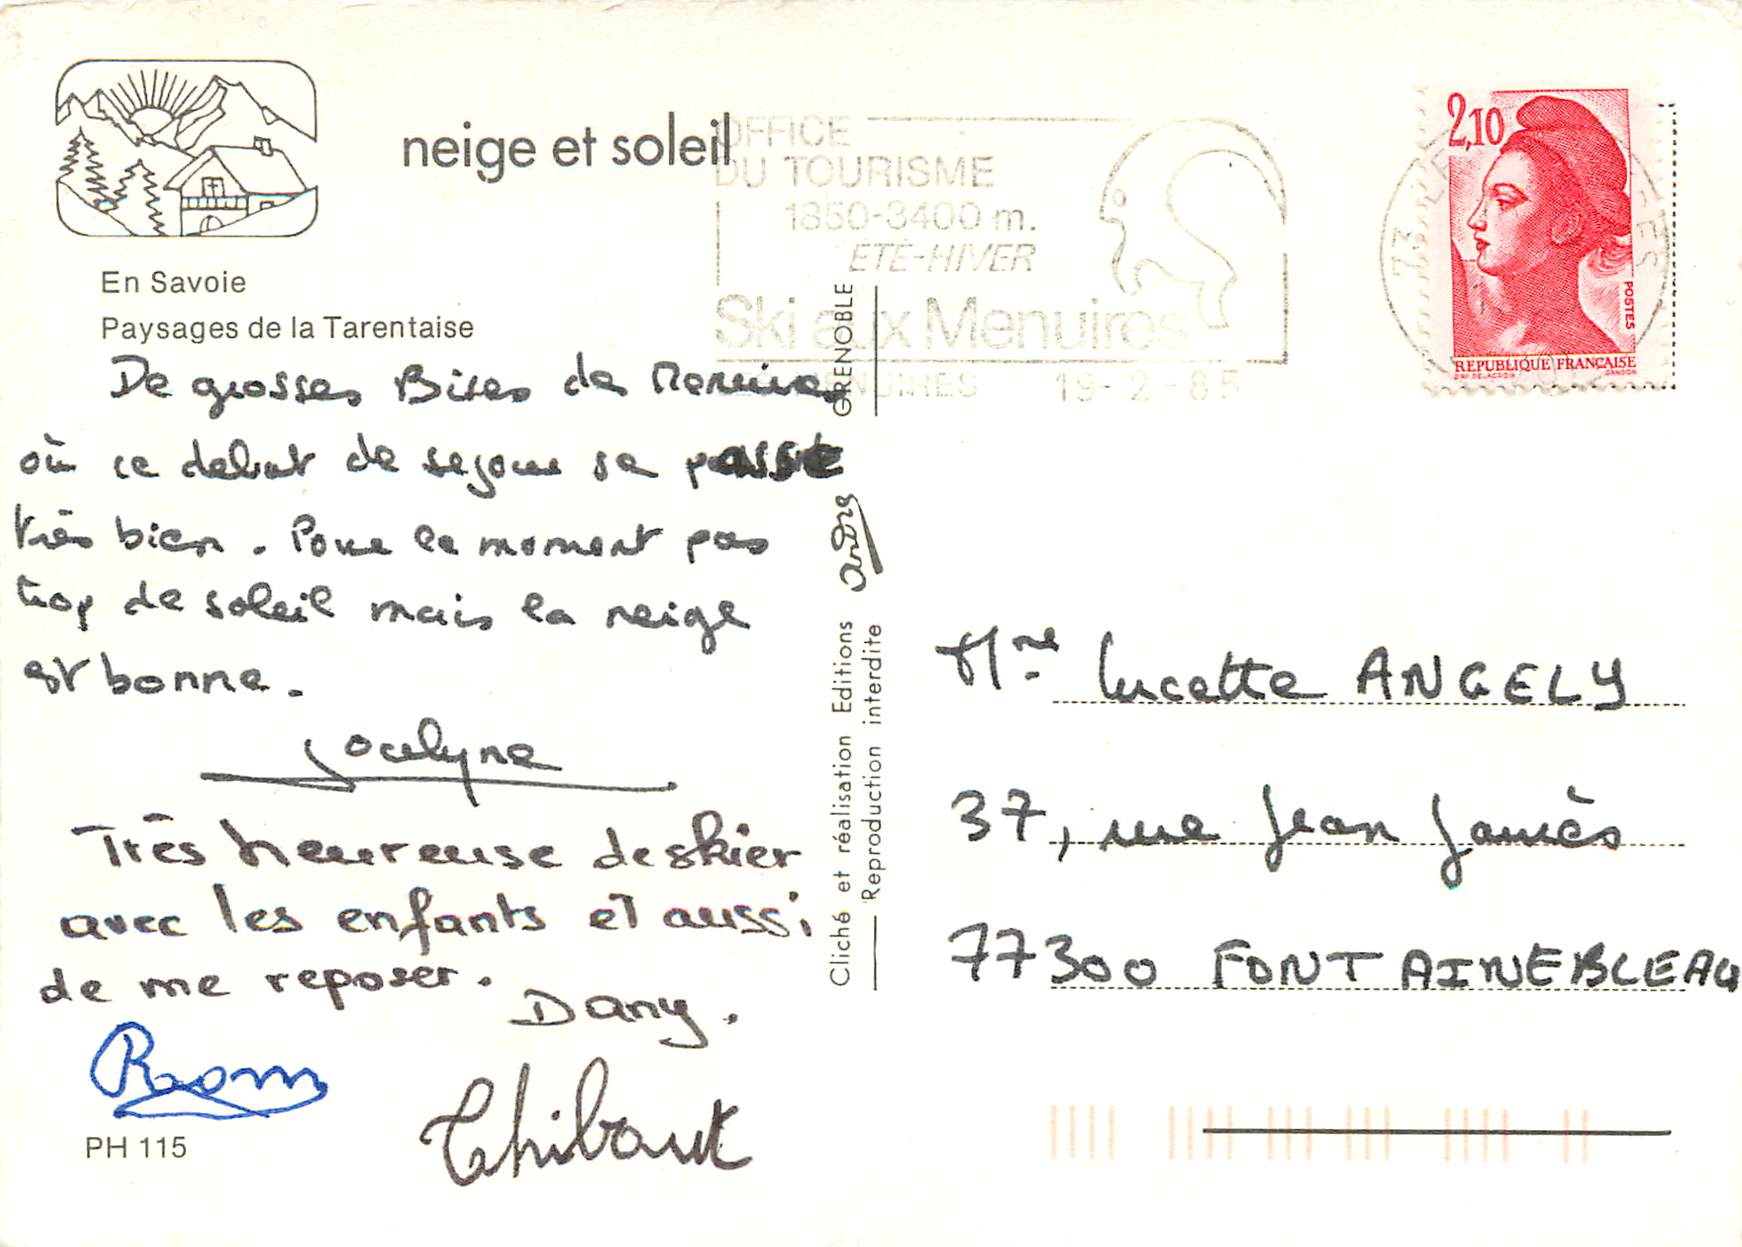 neige et soleil
OFFICE
DU TOURISME
1850-3400 m.
ETÉ-HIVER
Ski aux Menuires
LES MENUIRES 19-2-85
2,10
POSTES
REPUBLIQUE FRANÇAISE
D'AP. DELACROIX GANDON
73
En Savoie
Paysages de la Tarentaise
De grosses Bises de Menuires
où ce debut de sejour se passe
très bien. Pour le moment pas
trop de soleil mais la neige
est bonne.
Jocelyne
Très heureuse de skier
avec les enfants et aussi
de me reposer.
Dany.
Thibaut
PH 115
GRENOBLE
André
Cliché et réalisation Editions
Reproduction interdite
Mme Lucette ANGELY
37, rue Jean Jaurès
77300 FONTAINEBLEAU